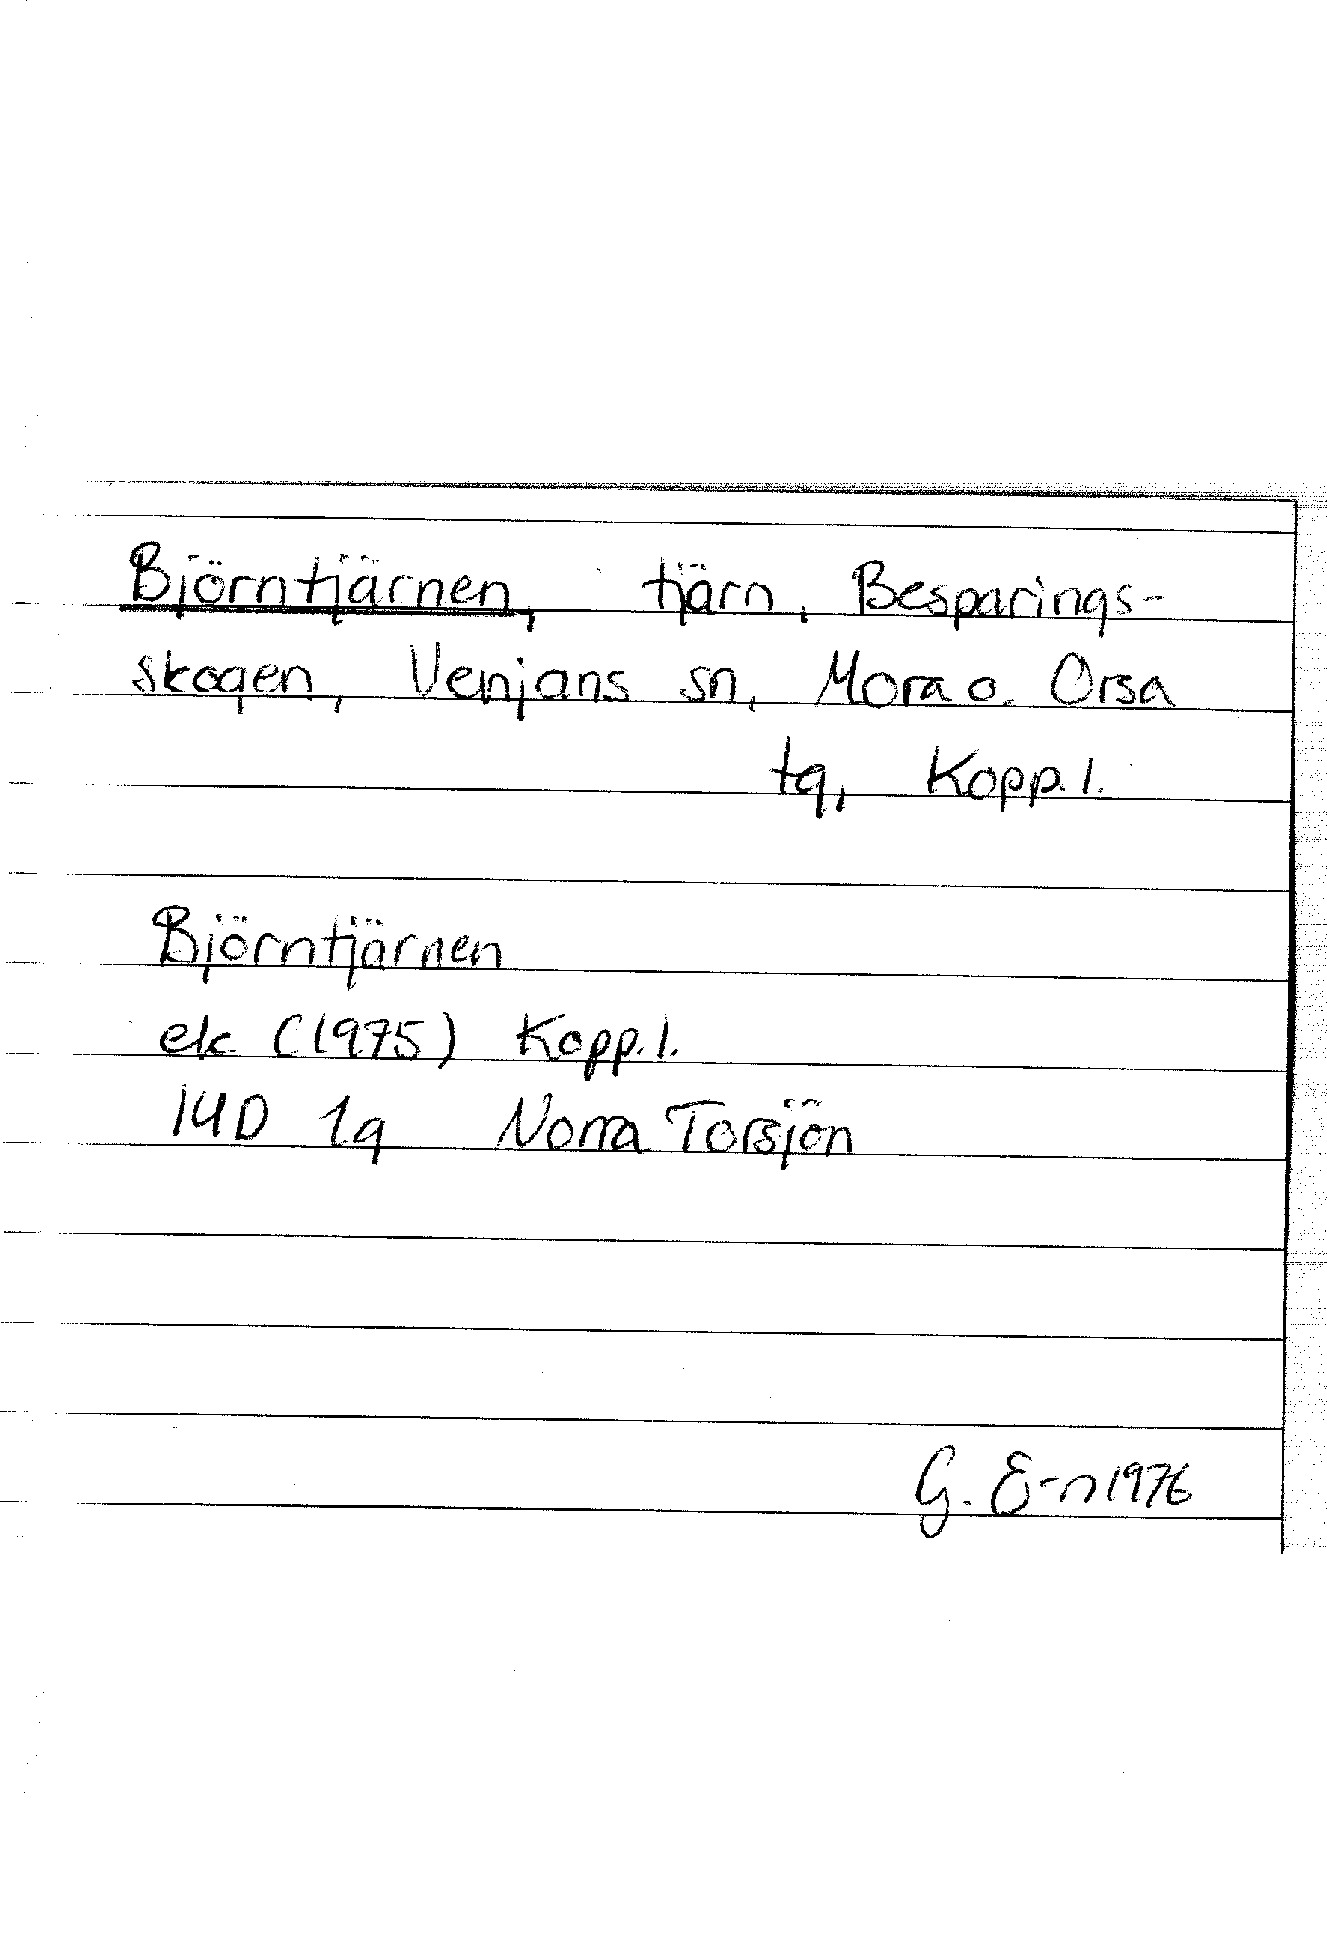 Björntjärnen, tjärn, Besparings-
skogen, Venjans sn, Mora o. Orsa
tg, Kopp. l.
Björntjärnen
ek (1975) Kopp. l.
14D 1g Norra Torsjön
G. E-n 1976